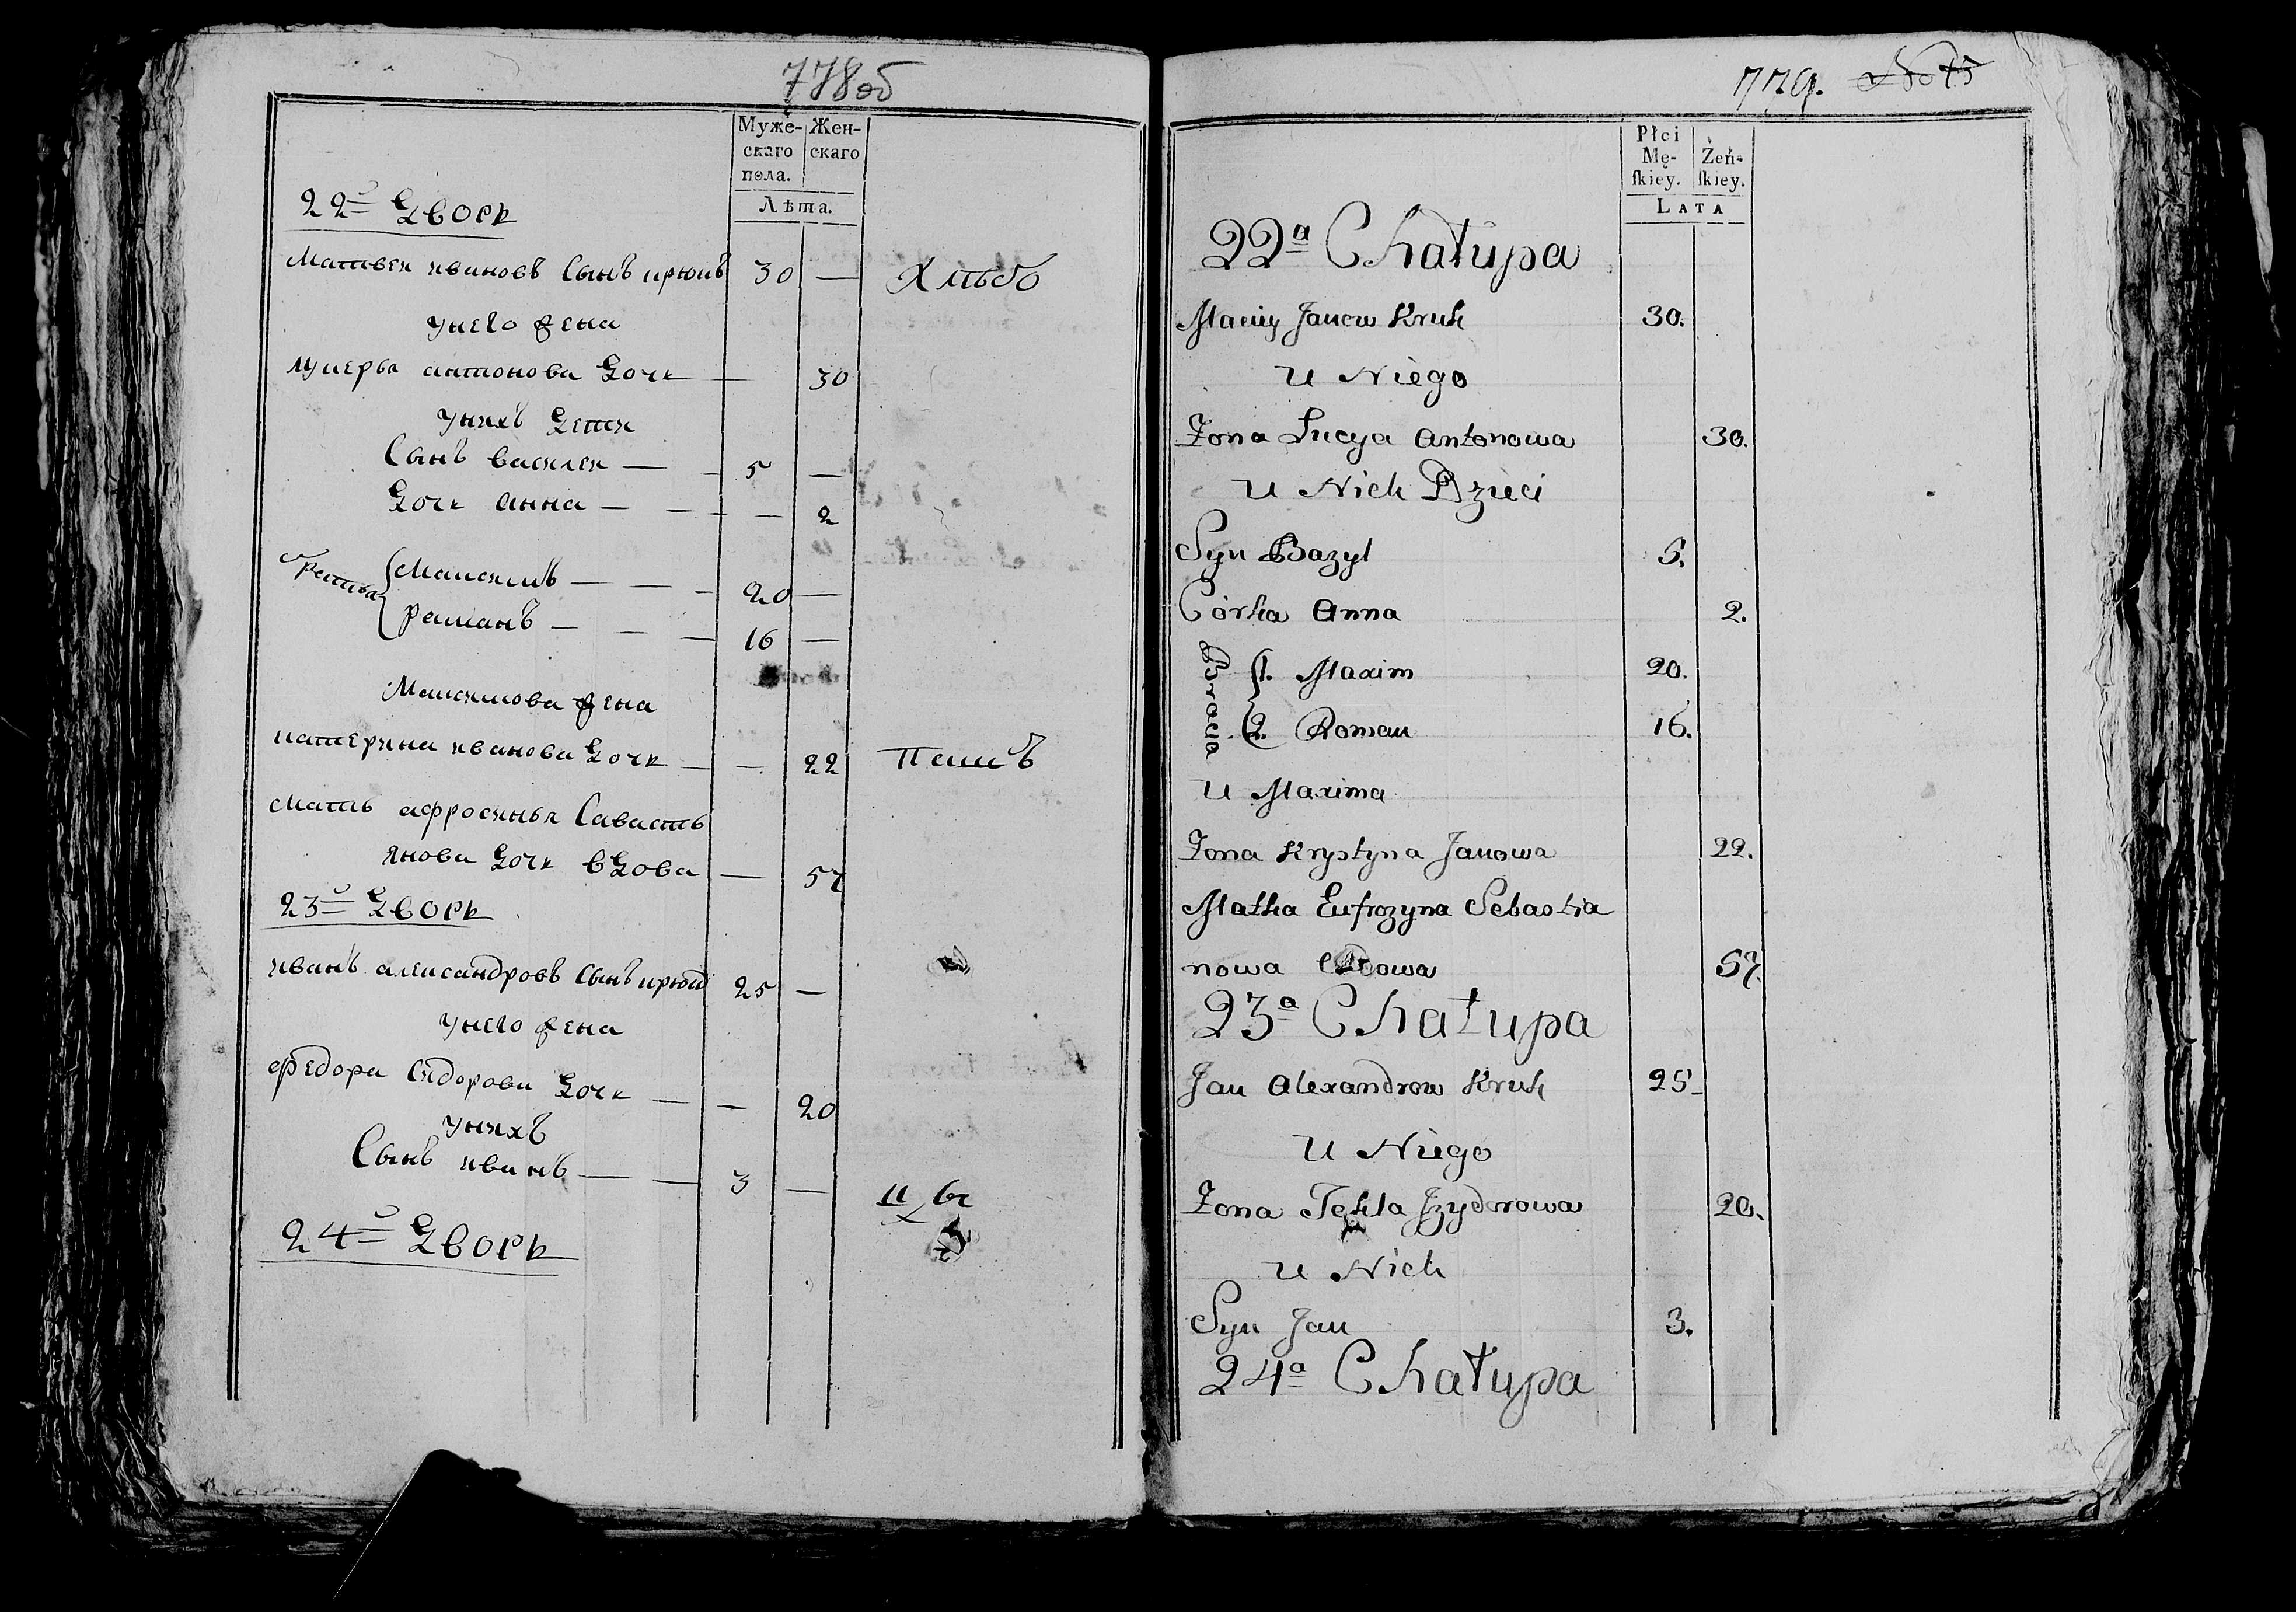 778об
Муже- Жен-
скаго скаго
пола.
Лѣта.
22й Дворъ
Матвеи ивановъ Сынъ крюкъ 30 —
унего жена
лукерья антонова Дочь — 30
унихъ Дети
Сынъ василеи — — 5 —
Дочь анна — — — — 2
братья Максимъ — — — 20 —
Раманъ — — — 16 —
Максимова жена
катерина иванова Дочь — — 22
Мать афросинья Савасть
янова Дочь вДова — 57
23й Дворъ
иванъ александровъ Сынъ крюк 25 —
унего жена
федора Сидорова Дочь — — 20
унихъ
Сынъ иванъ — — 3 —
24й Дворъ
779.
Płci
Mę- Żeń-
skiey. skiey.
LATA
22a Chałupa
Maciey Janow Kruk 30.
U Niego
Zona Łucya Antonowa 30.
U Nich Dzieci
Syn Bazyl 5.
Córka Anna 2.
Bracia 1. Maxim 20.
2. Roman 16.
U Maxima
Zona Krystyna Janowa 22.
Matka Eufrozyna Sebastia
nowa Wdowa 57.
23a Chałupa
Jan Alexandrow Kruk 25
U Niego
Zona Tekla Jzydorowa 20.
U Nich
Syn Jan 3.
24a Chałupa